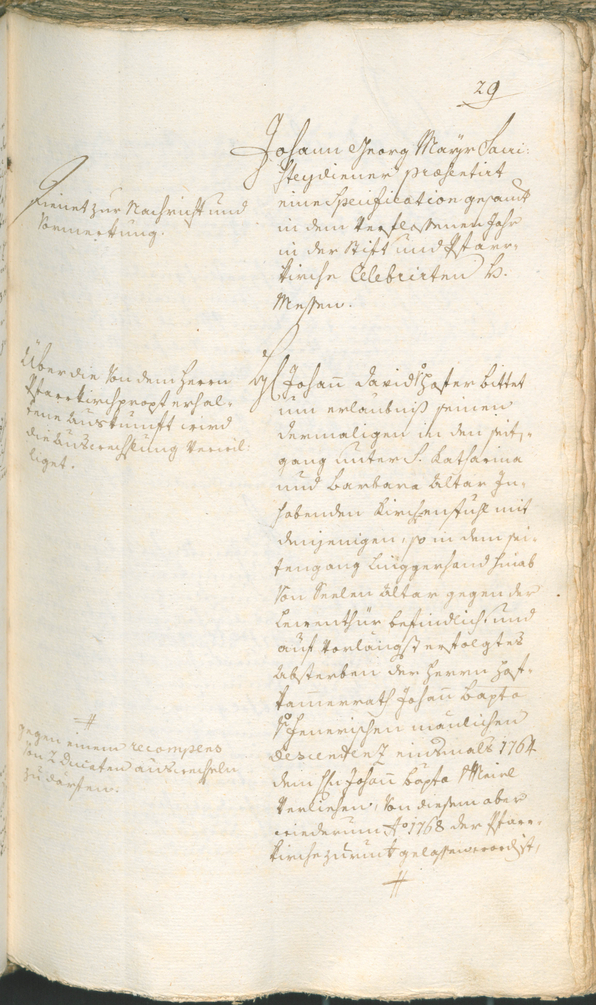 29
Johann Georg Mayr Sacri:
steydiener præsentirt
eine Specification gesamt
in dem verflossenen Jahr
in der Stift und Pfarr-
kirche Celebrirten H.
Messen.
Dienet zur Nachricht und
Vormerkung.
Johann David Hofer bittet
um erlaubniß seinen
dermaligen in den seit-
gang unter S. Katharina
und Barbara Altar In-
habenden Kirchenstuhl mit
demjenigen, so in dem sei-
tengang linggerhand hinab
von Seelen Altar gegen der
befindlich, und
auf vorlängst erfolgtes
absterben der Herrn Hof-
kammerrath Johann Bapta
mänlichen
descendenz einsmals 1764
dem Hn Johann Bapta
verliehen, von diesem aber
wiederum Ao 1768 der Pfarr-
kirche zuruck gelassen worden ist,
#
Über die von dem Herrn
Pfarrkirchpropst erhal-
tene Auskunft wird
die Auswechslung verwil-
liget.
#
gegen einem recompens
von 2 Ducaten auswechseln
zu dörfen.